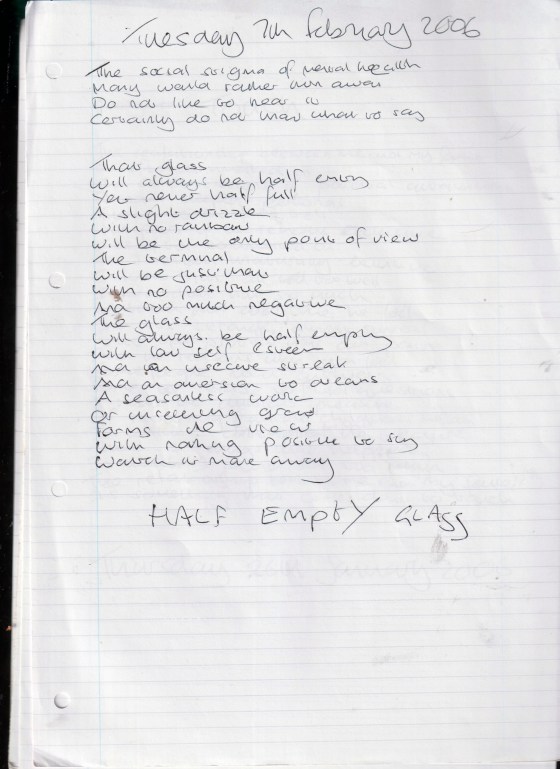 Tuesday 7th February 2006
The social stigma of mental health
Many would rather run away
Do not like to hear it
Certainly do not know what to say
That glass
will always be half empty
Yet never half full
A slight drizzle
With no rainbow
will be the only point of view
The terminal
will be just that
With no positive
And too much negative
The glass
will always be half empty
with low self esteem
And an insecure streak
And an aversion to dreams
A seasonless world
Of unseeing grey
Forms the view
With nothing positive to say
Watch it fade away
HALF EMPTY GLASS